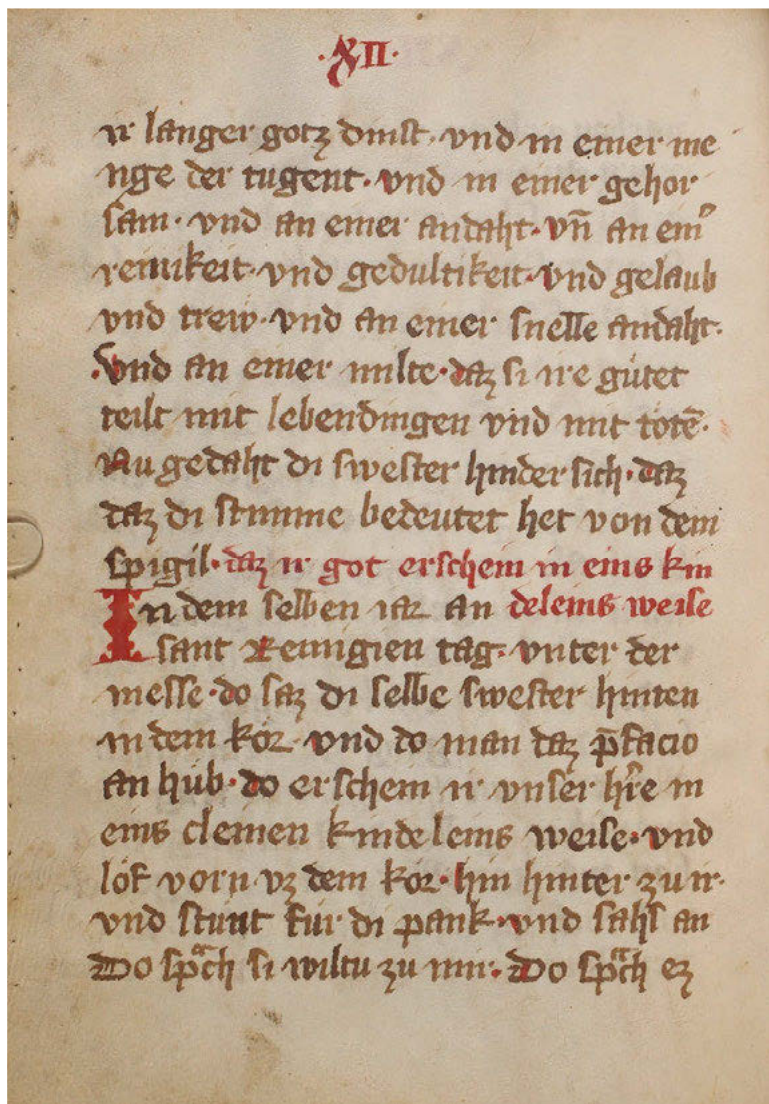 ·XII·
ir langer gotz dinst· vnd in einer me
nge der tugent· vnd in einer gehor
sam· vnd an einer andaht· vn̄ an ein͛
reinikeit· vnd gedultikeit· vnd gelaub
vnd trew· vnd an einer snelle andaht·
·Vnd an einer milte· daz si ire gůtet
teilt mit lebendingen vnd mit totē·
Nu gedaht di swester hinder sich· daz
daz di stimme bedeutet het von dem
spigil· daz ir got erschein in eins kin
In dem selben iar an deleins weise
sant Remigien tag· vnter der
messe· do saz di selbe swester hinten
in dem kor· vnd do man daz p̄facio
an hůb· do erschein ir vnser hr̄e in
eins cleinen kindeleins weise· vnd
lof vorn vz dem kor· hin hinter zu ir·
vnd stunt fur di pank· vnd sahs an
Do spͣch si wiltu zu mir· Do spͣch ez